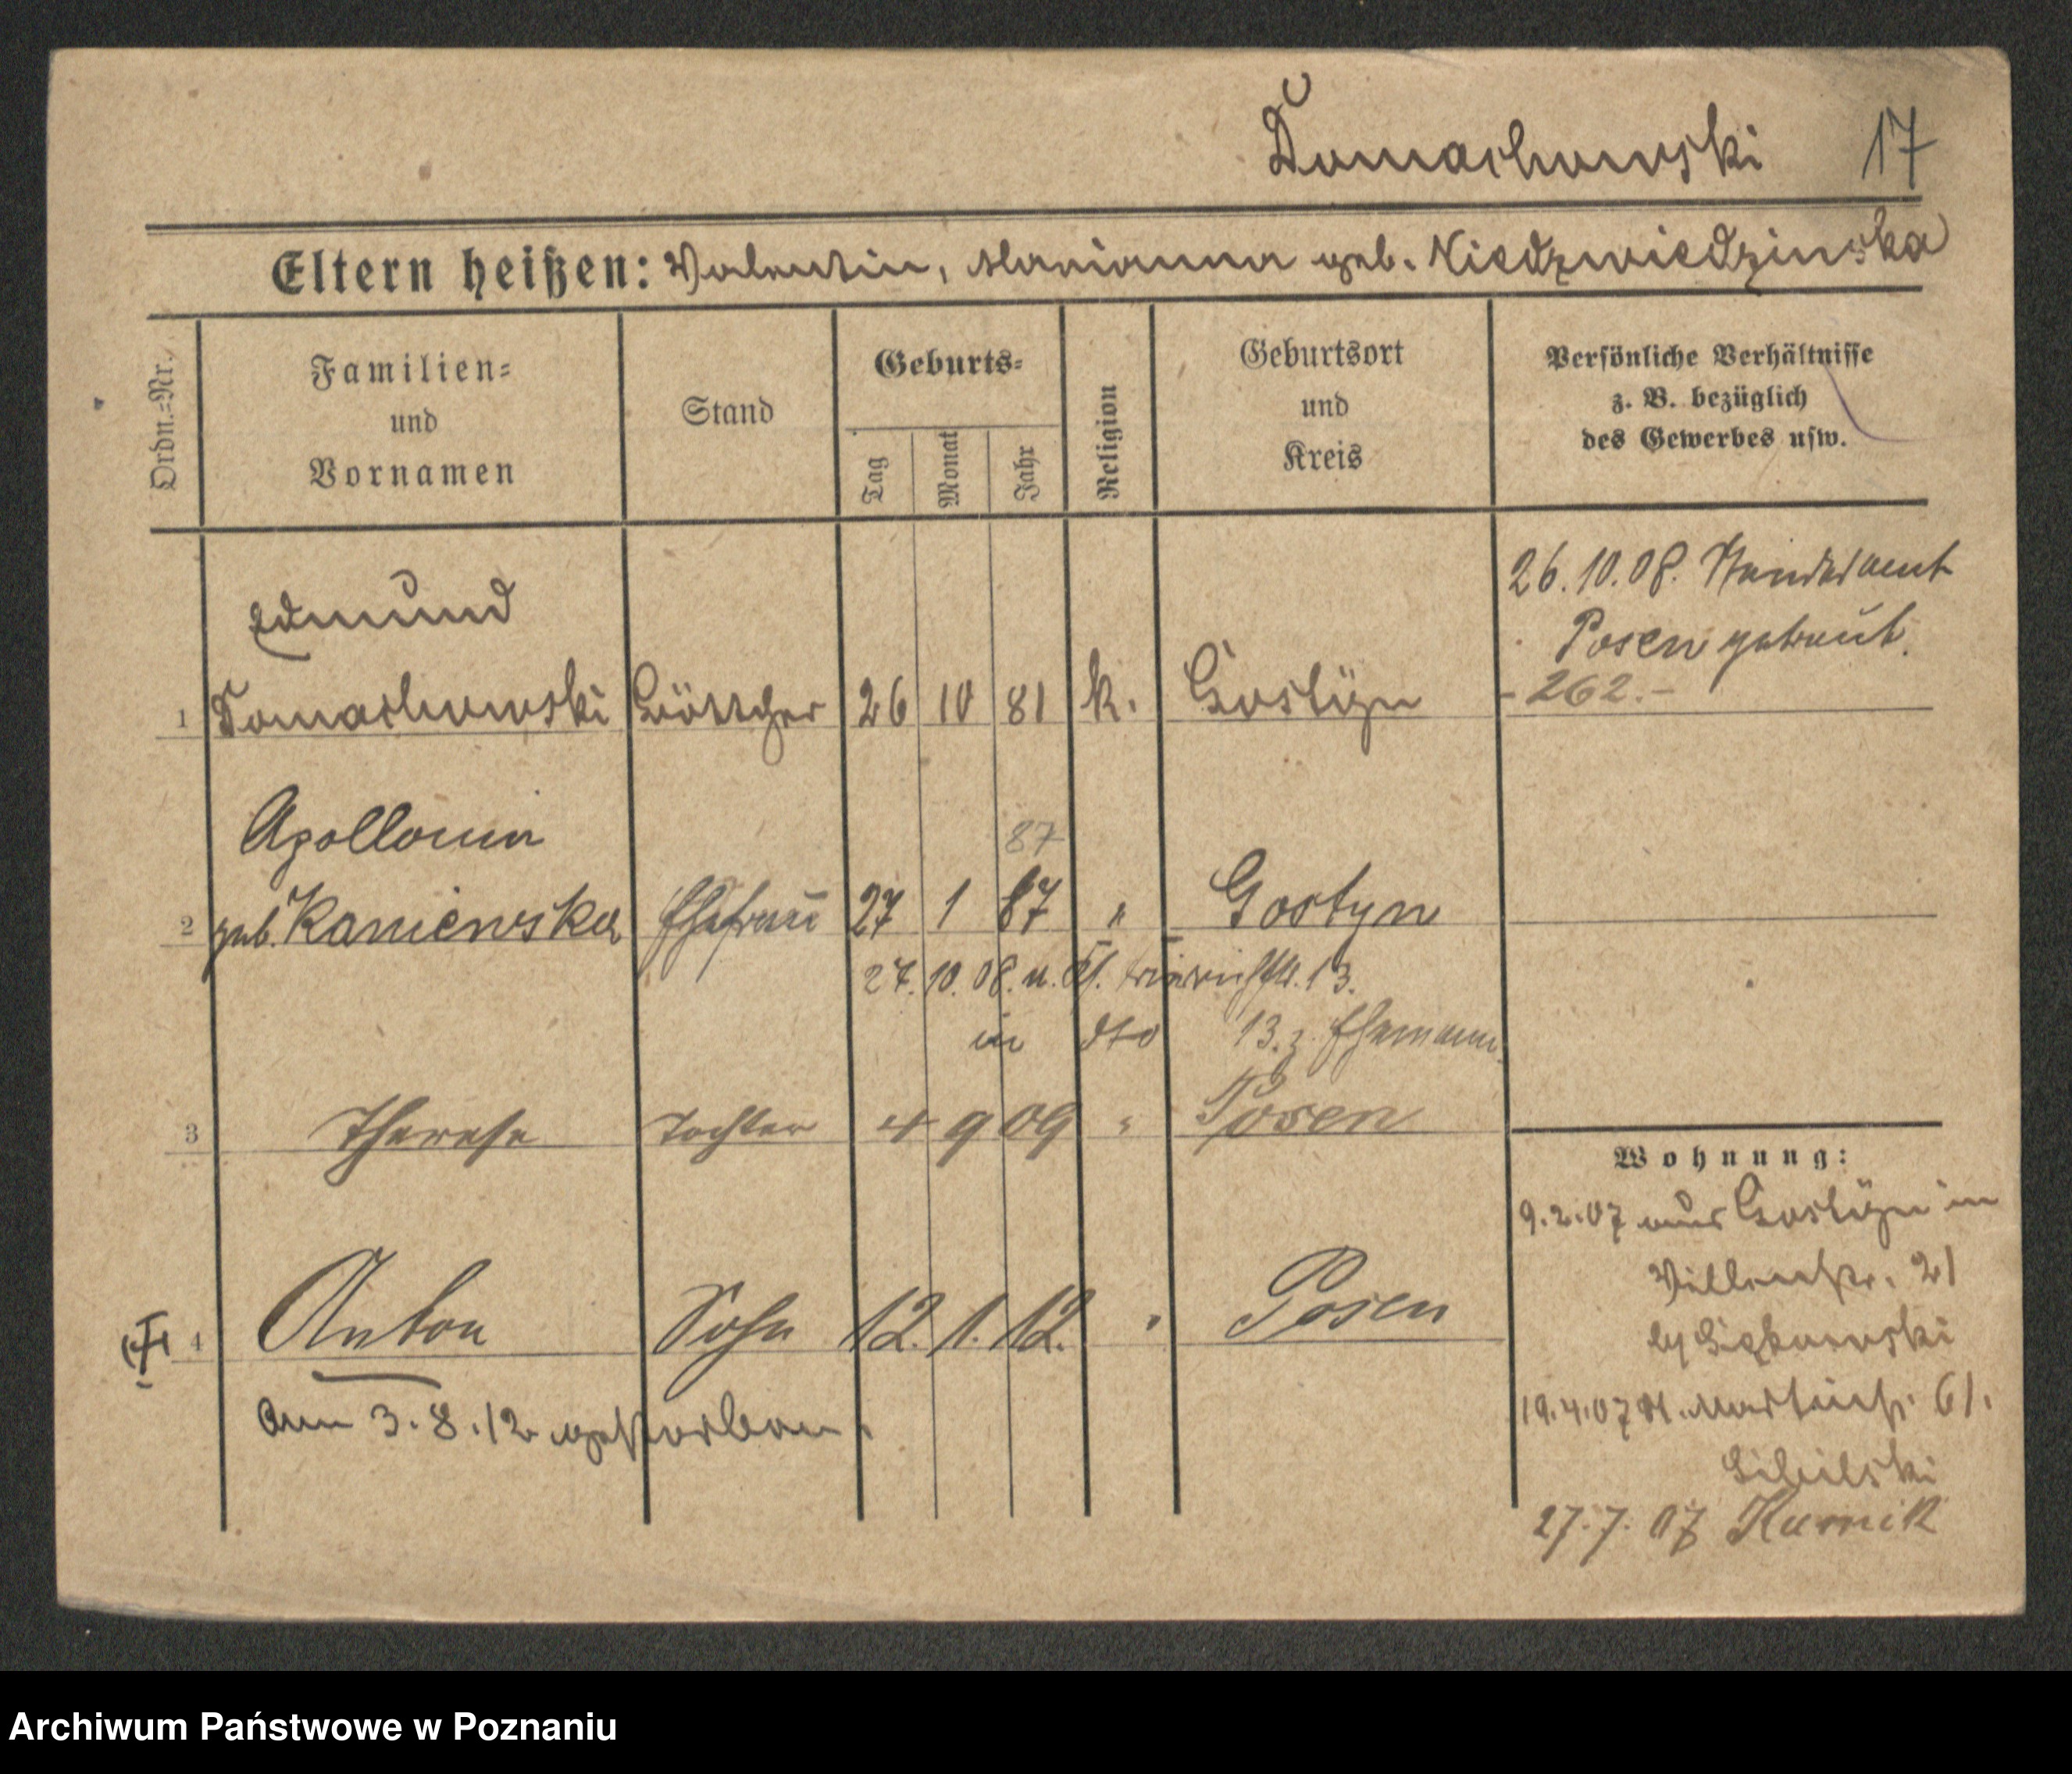 Domachowski 17
Eltern heißen: Valentin, Marianna geb. Niedzwiedzinska
Ordn.-Nr.
Familien-
und
Vornamen
Stand
Geburts-
Tag
Monat
Jahr
Religion
Geburtsort
und
Kreis
Persönliche Verhältnisse
z. B. bezüglich
des Gewerbes usw.
26.10.08. Standesamt
Posen getraut.
- 262. -
Edmund
1 Domachowski Böttcher 26 10 81 k. Gostÿn
Apollonia
87
2 geb. Kaniewska Ehefrau 27 1 87 " Gostyn
27. 10. 08. n. 13.
in dto 13. z. Ehemann.
3 Therese Tochter 4 9 09 " Posen
4 Anton Sohn 12. 1. 12. " Posen
am 3.8.12 gestorben.
Wohnung:
9.2.07 aus Gostÿn in
21
19.4.07 St. Martinstr. 61.
27.7.07 Kurnik
Archiwum Państwowe w Poznaniu